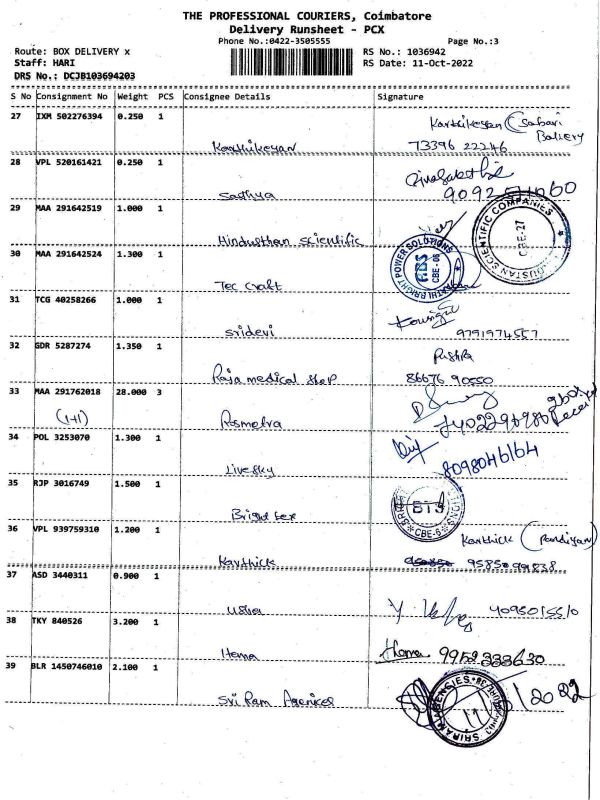 THE PROFESSIONAL COURIERS, Coimbatore
Delivery Runsheet - PCX
Phone No.:0422-3505555 Page No.:3
Route: BOX DELIVERY x RS No.: 1036942
Staff: HARI RS Date: 11-Oct-2022
DRS No.: DCJB103694203
S No Consignment No Weight PCS Consignee Details Signature
27 IXM 502276394 0.250 1 Karthikeyan Karthikeyan (Sabari Battery
73396 22246
28 VPL 520161421 0.250 1 Sathya
29 MAA 291642519 1.000 1 Hindusthan scientific
HINDUSTAN SCIENTIFIC COMPANIES CBE-27
30 MAA 291642524 1.300 1 Tec Craft
RATHI BRIGHT POWER SOLUTIONS RBS CBE-06
31 TCG 40258266 1.000 1 sridevi 9791974557
32 GDR 5287274 1.350 1 Raja medical shop Pushpa
86676 90550
33 MAA 291762018 28.000 3 Rosmetra
(1+1)
34 POL 3253070 1.300 1 Livesky 8098046164
35 RJP 3016749 1.500 1 Bright tex
BTS CBE-6
36 VPL 939759310 1.200 1 Karthick Karthick (Pandiyan)
9585099838
37 ASD 3440311 0.900 1 Usha
38 TKY 840526 3.200 1 Hema Hema 9952333630
39 BLR 1450746010 2.100 1 Sri Ram Agencies
SRIRAM AGENCIES